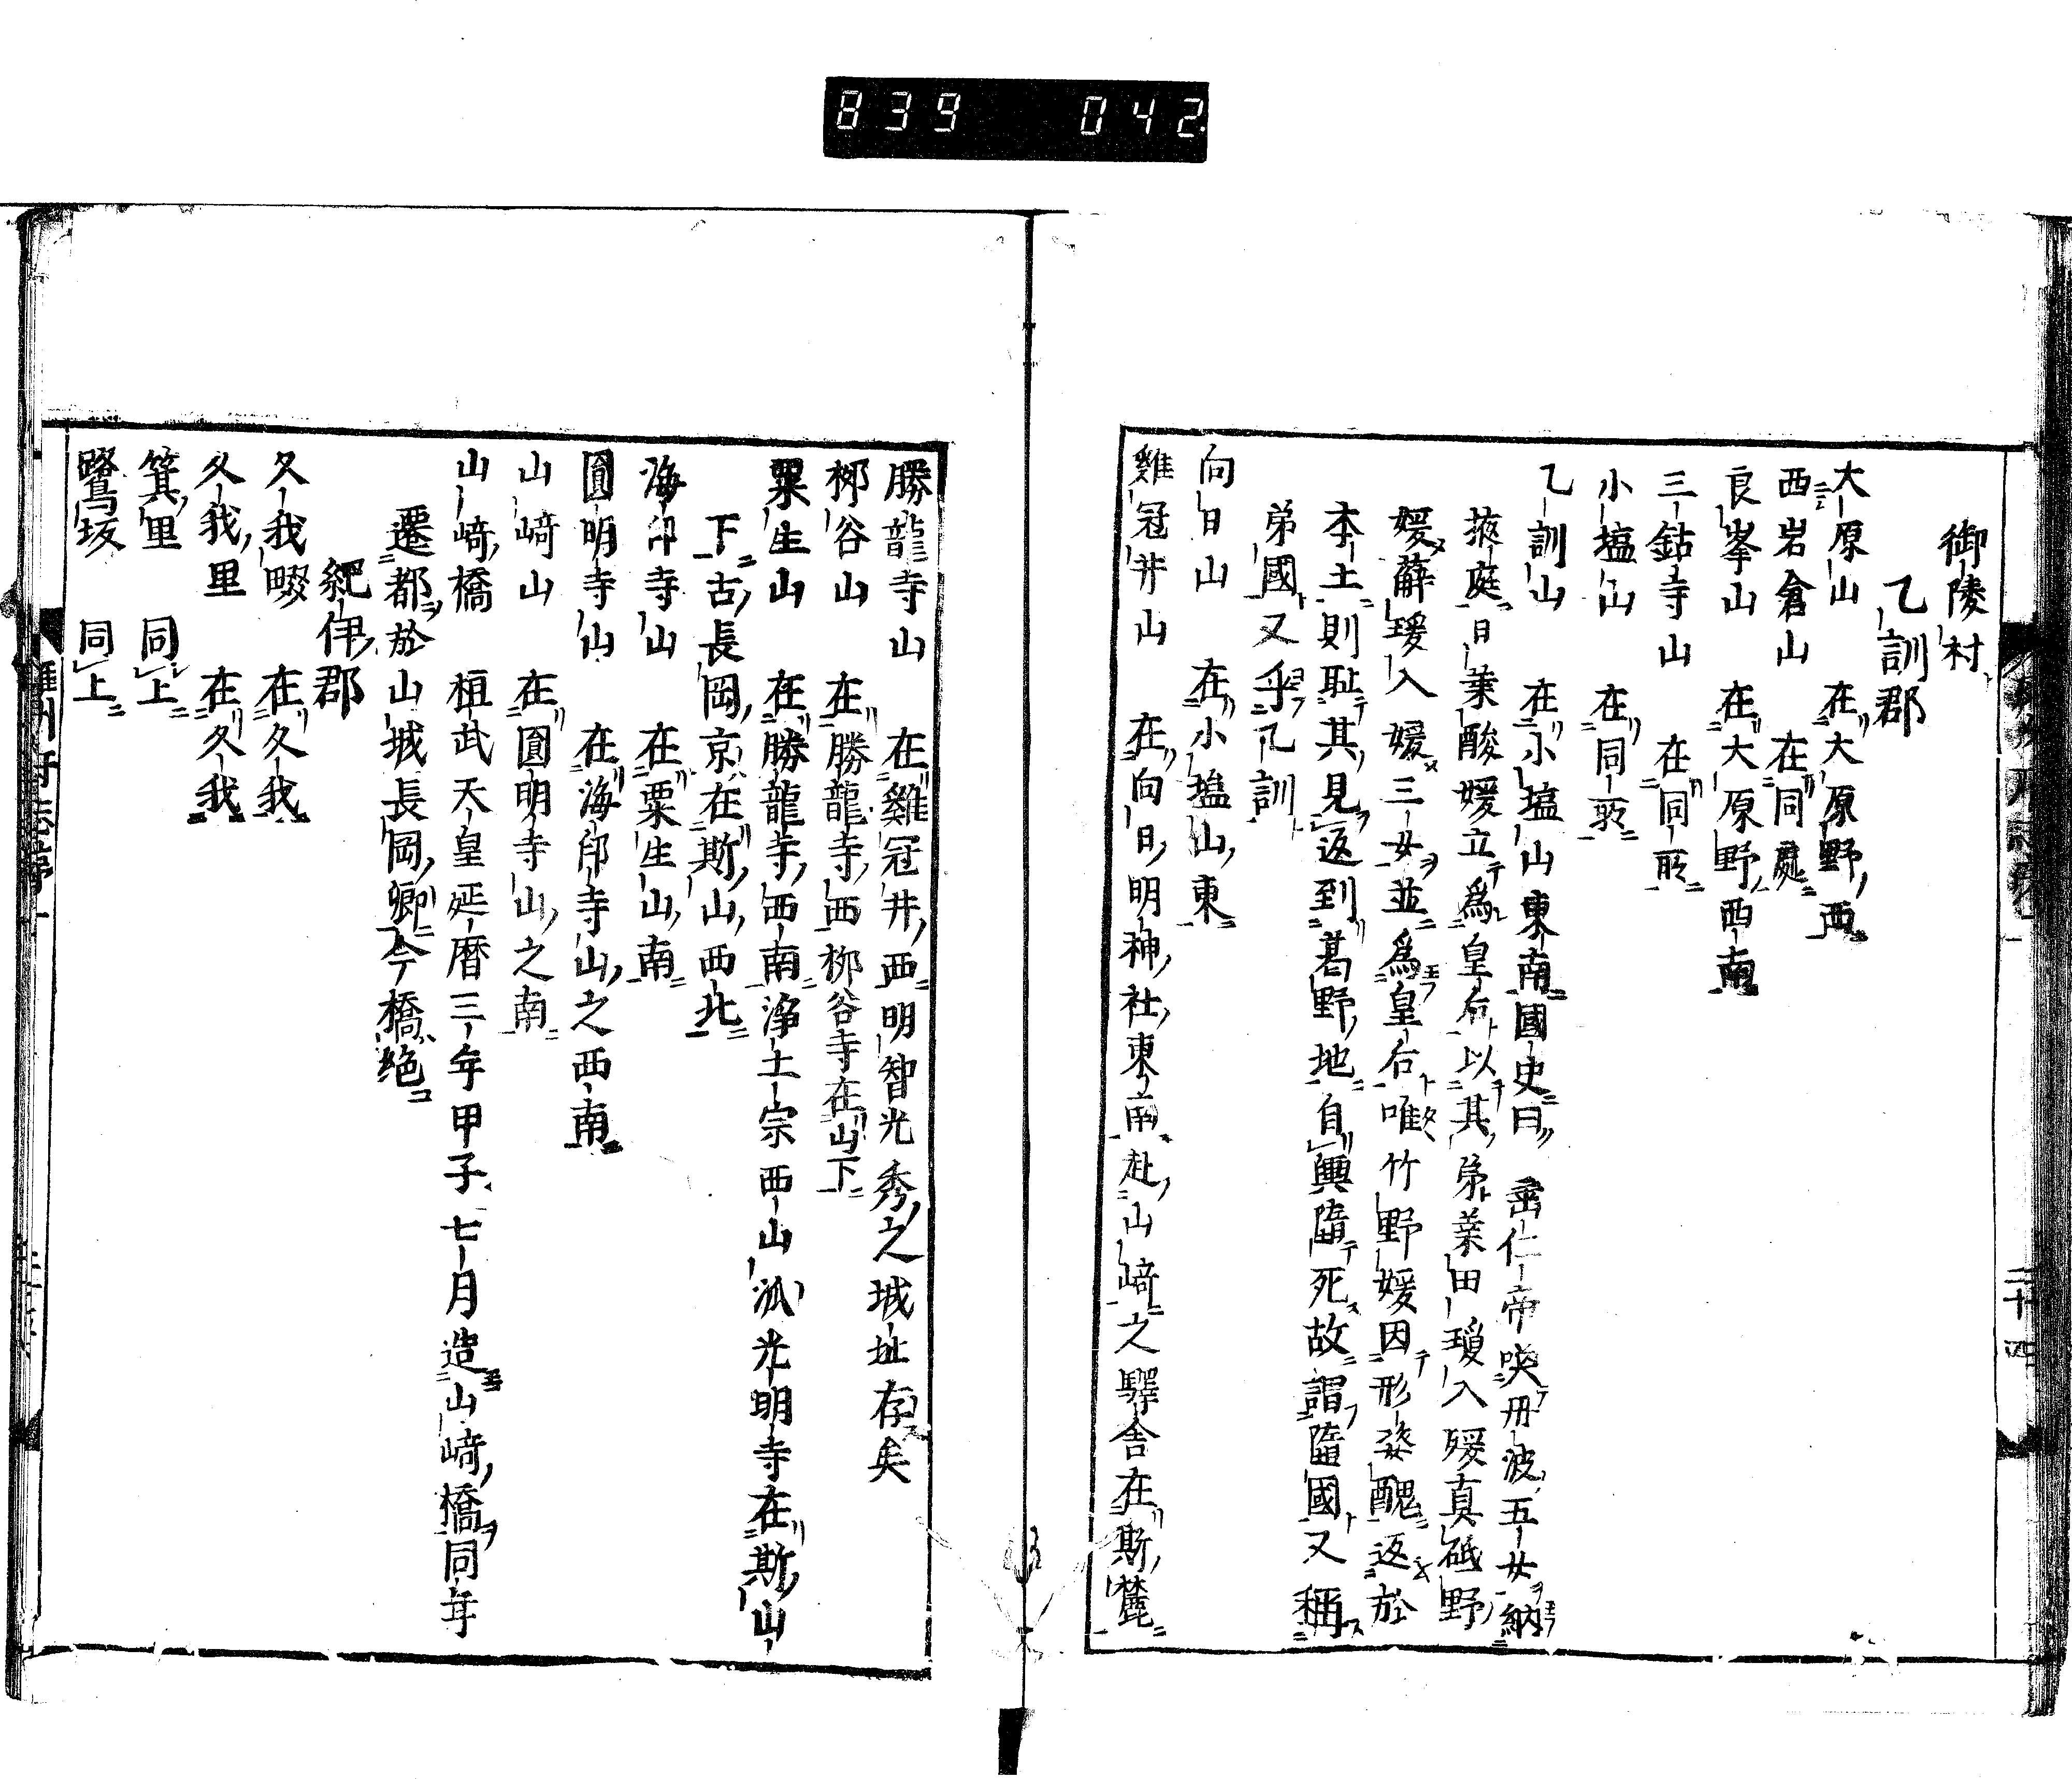 839 042
御陵村
乙訓郡
大原山 在大原野西
西岩倉山 在同處
良峯山 在大原野西南
三鈷寺山 在同所
小塩山 在同所
乙訓山 在小塩山東南國史曰 垂仁帝喚丹波五女納
掖庭日葉酸媛立爲皇后以其弟葉田瓊入媛真砥野
媛薊瓊入媛三女並爲皇后唯竹野媛因形姿醜返於
本土則耻其見返到葛野地自輿墮死故謂墮國又稱
弟國又乎乙訓
向日山 在小塩山東
雞冠井山 在向日明神社東南赴山﨑之驛舍在斯麓
勝龍寺山 在雞冠井西明智光秀之城址存矣
柳谷山 在勝龍寺西柳谷寺在山下
粟生山 在勝龍寺西南淨土宗西山派光明寺在斯山
下古長岡京在斯山西北
海印寺山 在粟生山南
圓明寺山 在海印寺山之西南
山﨑山 在圓明寺山之南
山﨑橋 桓武天皇延曆三年甲子七月造山﨑橋同年
遷都於山城長岡卿今橋絶
紀伊郡
久我畷 在久我
久我里 在久我
箕里 同上
鷺坂 同上
雍州府志
二十四